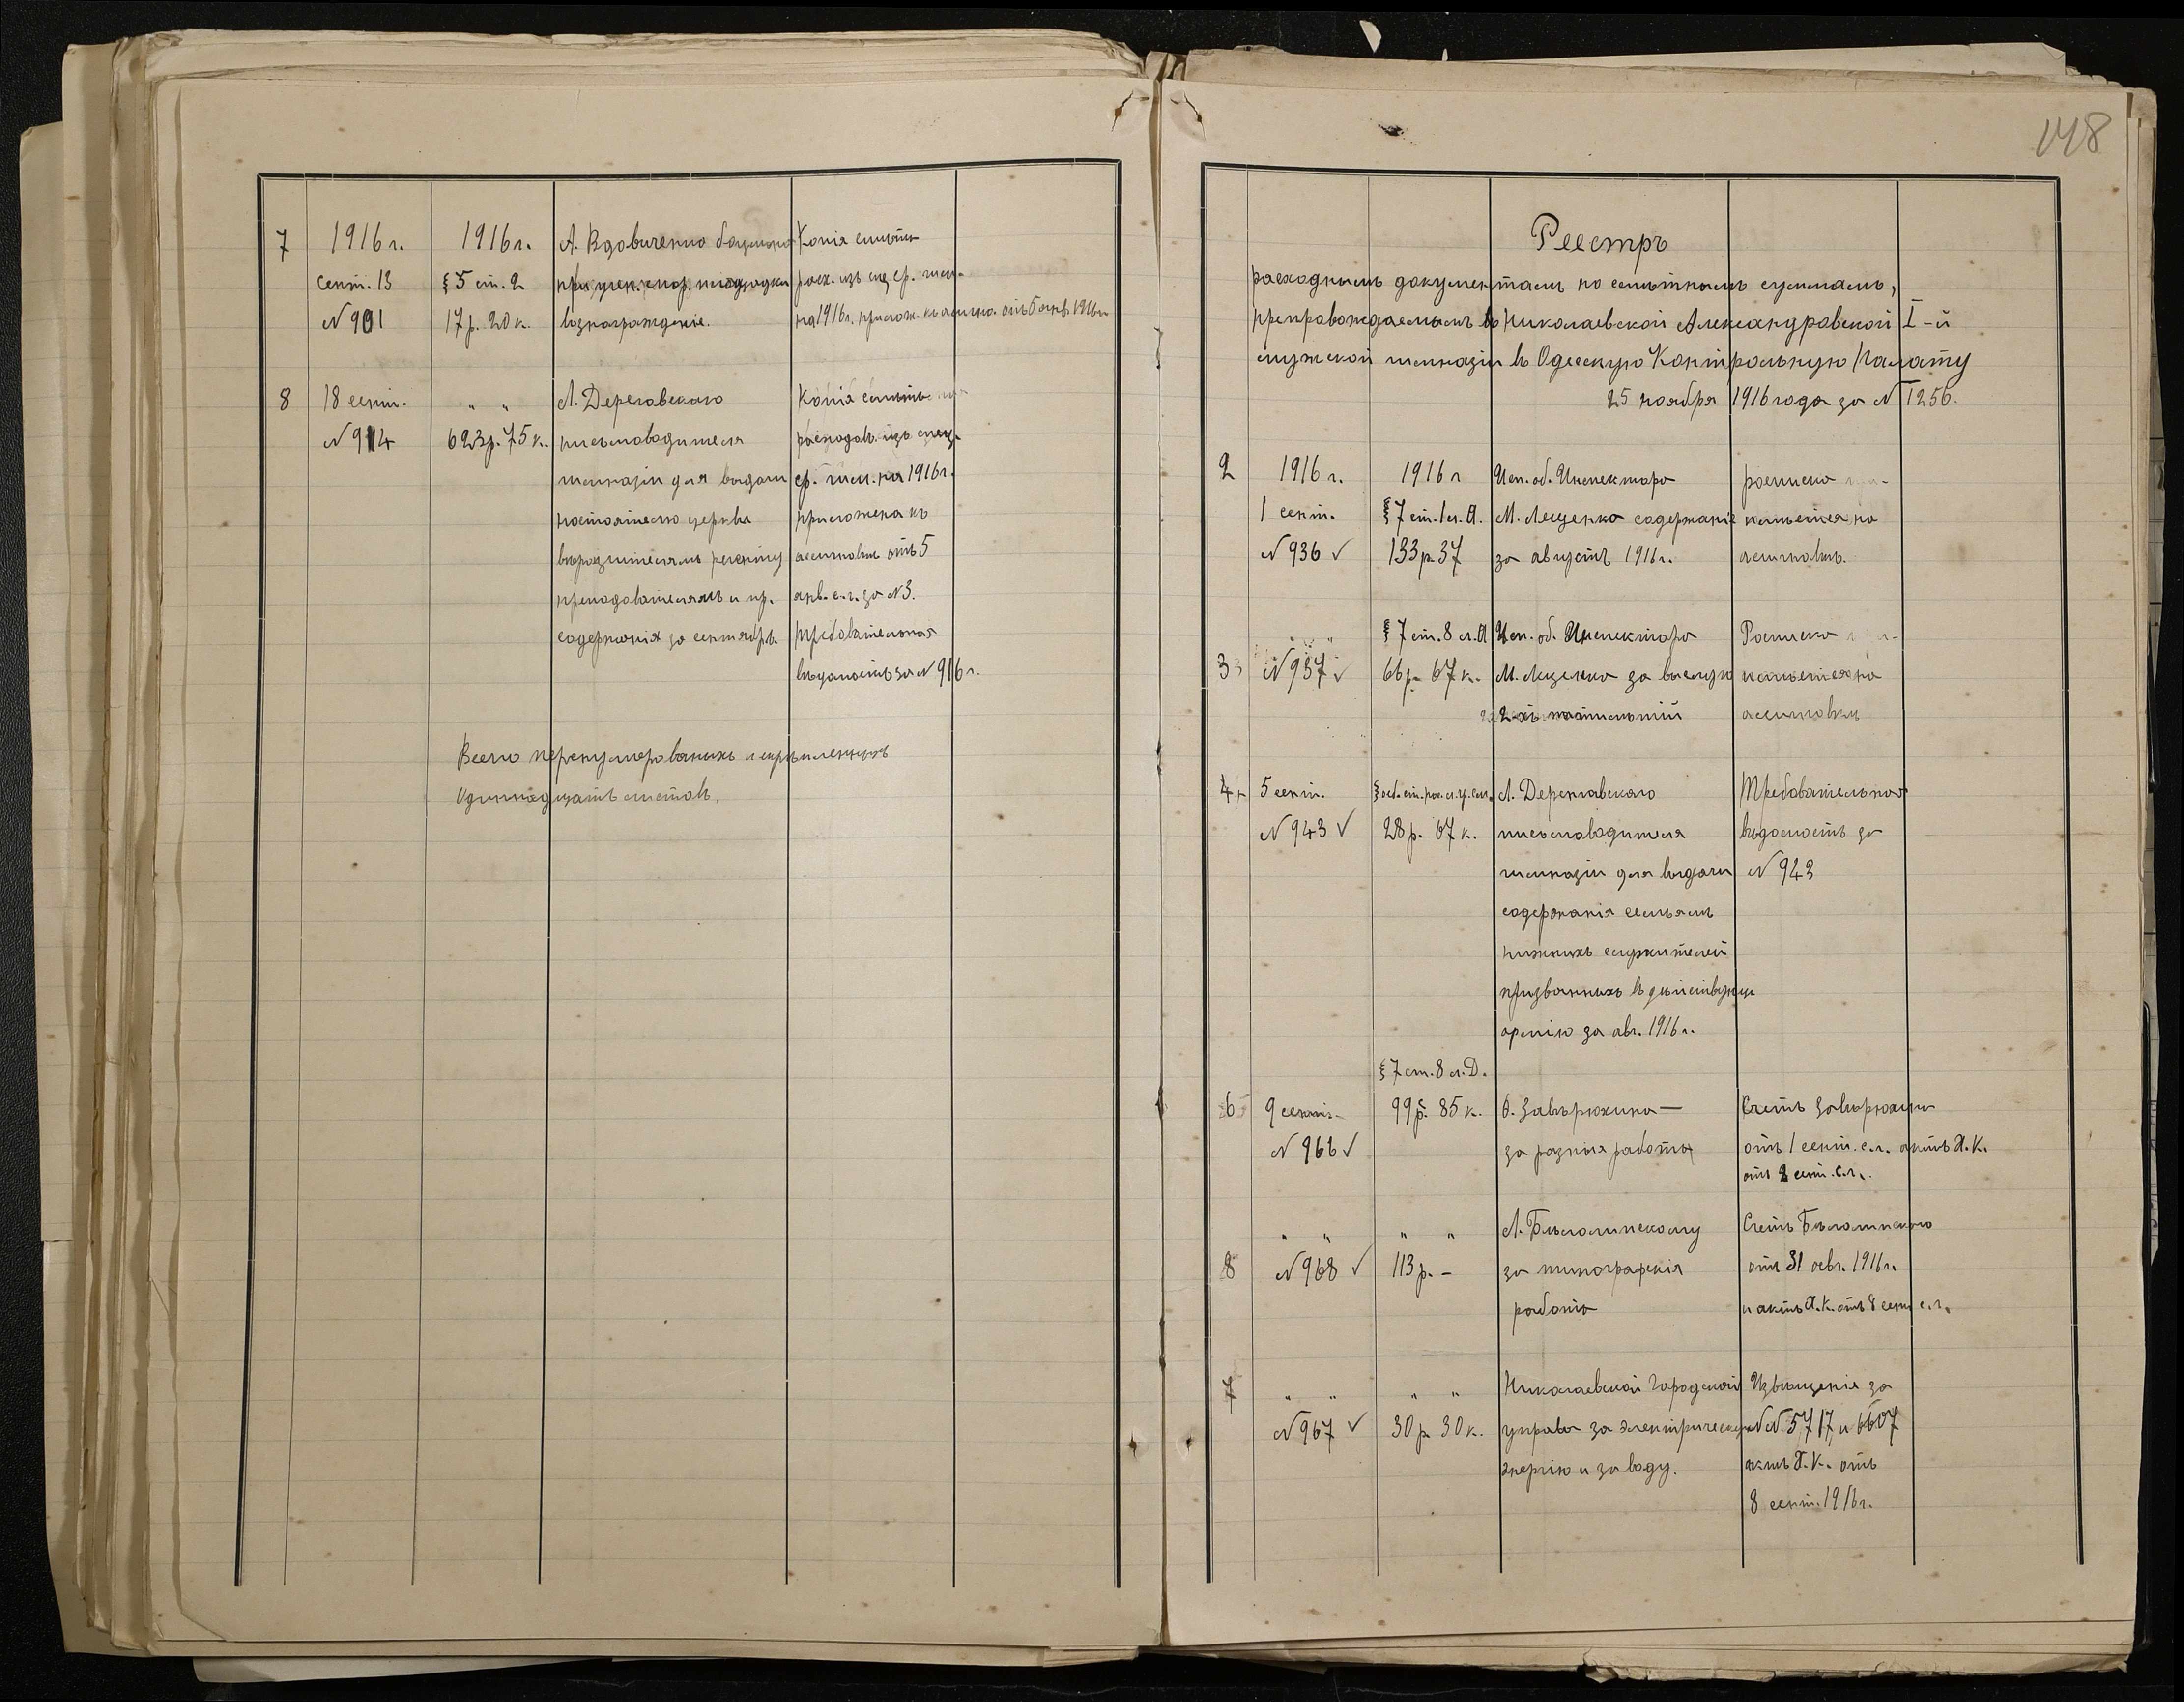 7 1916 г. 1916 г. А. Вдовиченко Копія смѣты
сент. 13 § 5 ст. 2 расх. изъ спец. ср. гим.
№ 901 17 р. 20 к. вознагражденіе. на 1916 г. прилож. къ отъ 5 янв. 1916 г.
8 18 сент. " " Л. Державскаго Копія смѣты
№ 914 623 р. 75 к. письмоводителя расходов. изъ спец.
гимназіи для выдачи ср. гим. на 1916 г.
настоятелю церкви приложена къ
регенту ассигновкѣ отъ 5
преподавателямъ и пр. янв. с.г. за № 3.
содержанія за сентябрь. Требовательная
вѣдомость за № 916 г.
Всего перенумерованныхъ и скрѣпленныхъ
Одиннадцать листовъ.
148
Реестръ
расходнымъ документамъ по смѣтнымъ суммамъ,
препровождаемымъ Николаевской Александровской I-й
мужской гимназіи въ Одесскую Контрольную Палату
25 ноября 1916 года за № 1256.
2 1916 г. 1916 г Исп. об. Инспектора росписка
1 сент. § 7 ст. 1 л. А. М. Лещенко содержаніе имѣется на
№ 936 ✓ 133 р. 37 за августъ 1916 г. ассигновкѣ.
" " § 7 ст. 8 л. А Исп. об. Инспектора Росписка
3 № 937 ✓ 66 р. 67 к. М. Лещенко за выслугу имѣется на
2-хъ пятилѣтій ассигновкѣ
4 5 сент. Л. Держановскаго Требовательная
№ 943 ✓ 28 р. 67 к. письмоводителя вѣдомость за
гимназіи для выдачи № 943
содержанія семьямъ
нижнихъ служителей
призванныхъ въ дѣйствующ.
армію за авг. 1916 г.
§ 7 ст. 8 л. Д.
6 9 сент. 99 р. 85 к. Завѣрюхина — Счетъ Завѣрюхина
№ 966 ✓ за разныя работы отъ 1 сент. с.г. актъ Х.К.
отъ 8 сент. с.г.
" " " " Л. Бѣлолипскому Счетъ Бѣлолипскаго
8 № 968 ✓ 113 р. – за типографскія отъ 31 авг. 1916 г.
работы и актъ Х.К. отъ 8 сент. с.г.
7 " " " " Николаевской Городской Извѣщенія за
№ 967 ✓ 30 р. 30 к. управѣ за электрическую №№ 5717 и 6607
энергію и за воду. актъ Х.К. отъ
8 сент. 1916 г.